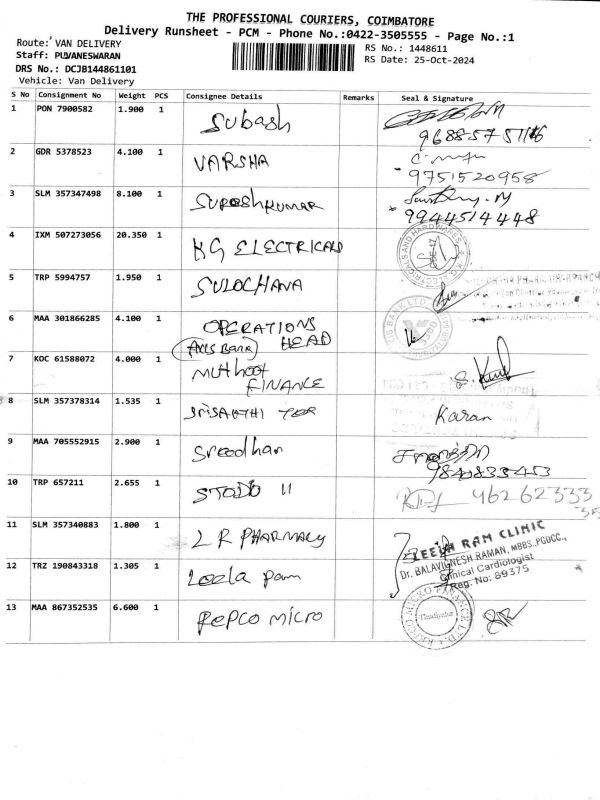 THE PROFESSIONAL COURIERS, COIMBATORE
Delivery Runsheet - PCM - Phone No.:0422-3505555 - Page No.:1
Route: VAN DELIVERY
RS No.: 1448611
Staff: PUVANESWARAN
RS Date: 25-Oct-2024
DRS No.: DCJB144861101
Vehicle: Van Delivery
S No Consignment No Weight PCS Consignee Details Remarks Seal & Signature
1 PON 7900582 1.900 1 Subash
2 GDR 5378523 4.100 1 VARSHA 9751520958
3 SLM 357347498 8.100 1 Sureshkumar 9944514448
4 IXM 507273056 20.350 1 KG ELECTRICALS
5 TRP 5994757 1.950 1 SULOCHANA
6 MAA 301866285 4.100 1 OPERATIONS HEAD
(AXIS BANK)
7 KOC 61588072 4.000 1 Muthoot FINANCE
8 SLM 357378314 1.535 1 Karan
9 MAA 705552915 2.900 1 Sreedhar 9840833453
10 TRP 657211 2.655 1 STUDIO 11
11 SLM 357340883 1.800 1 L R PHARMACY
LEELA RAM CLINIC
Dr. BALAVIGNESH RAMAN, MBBS, PGDCC.,
Clinical Cardiologist
Reg. No: 89375
12 TRZ 190843318 1.305 1 Leela Ram
13 MAA 867352535 6.600 1 Repco Micro